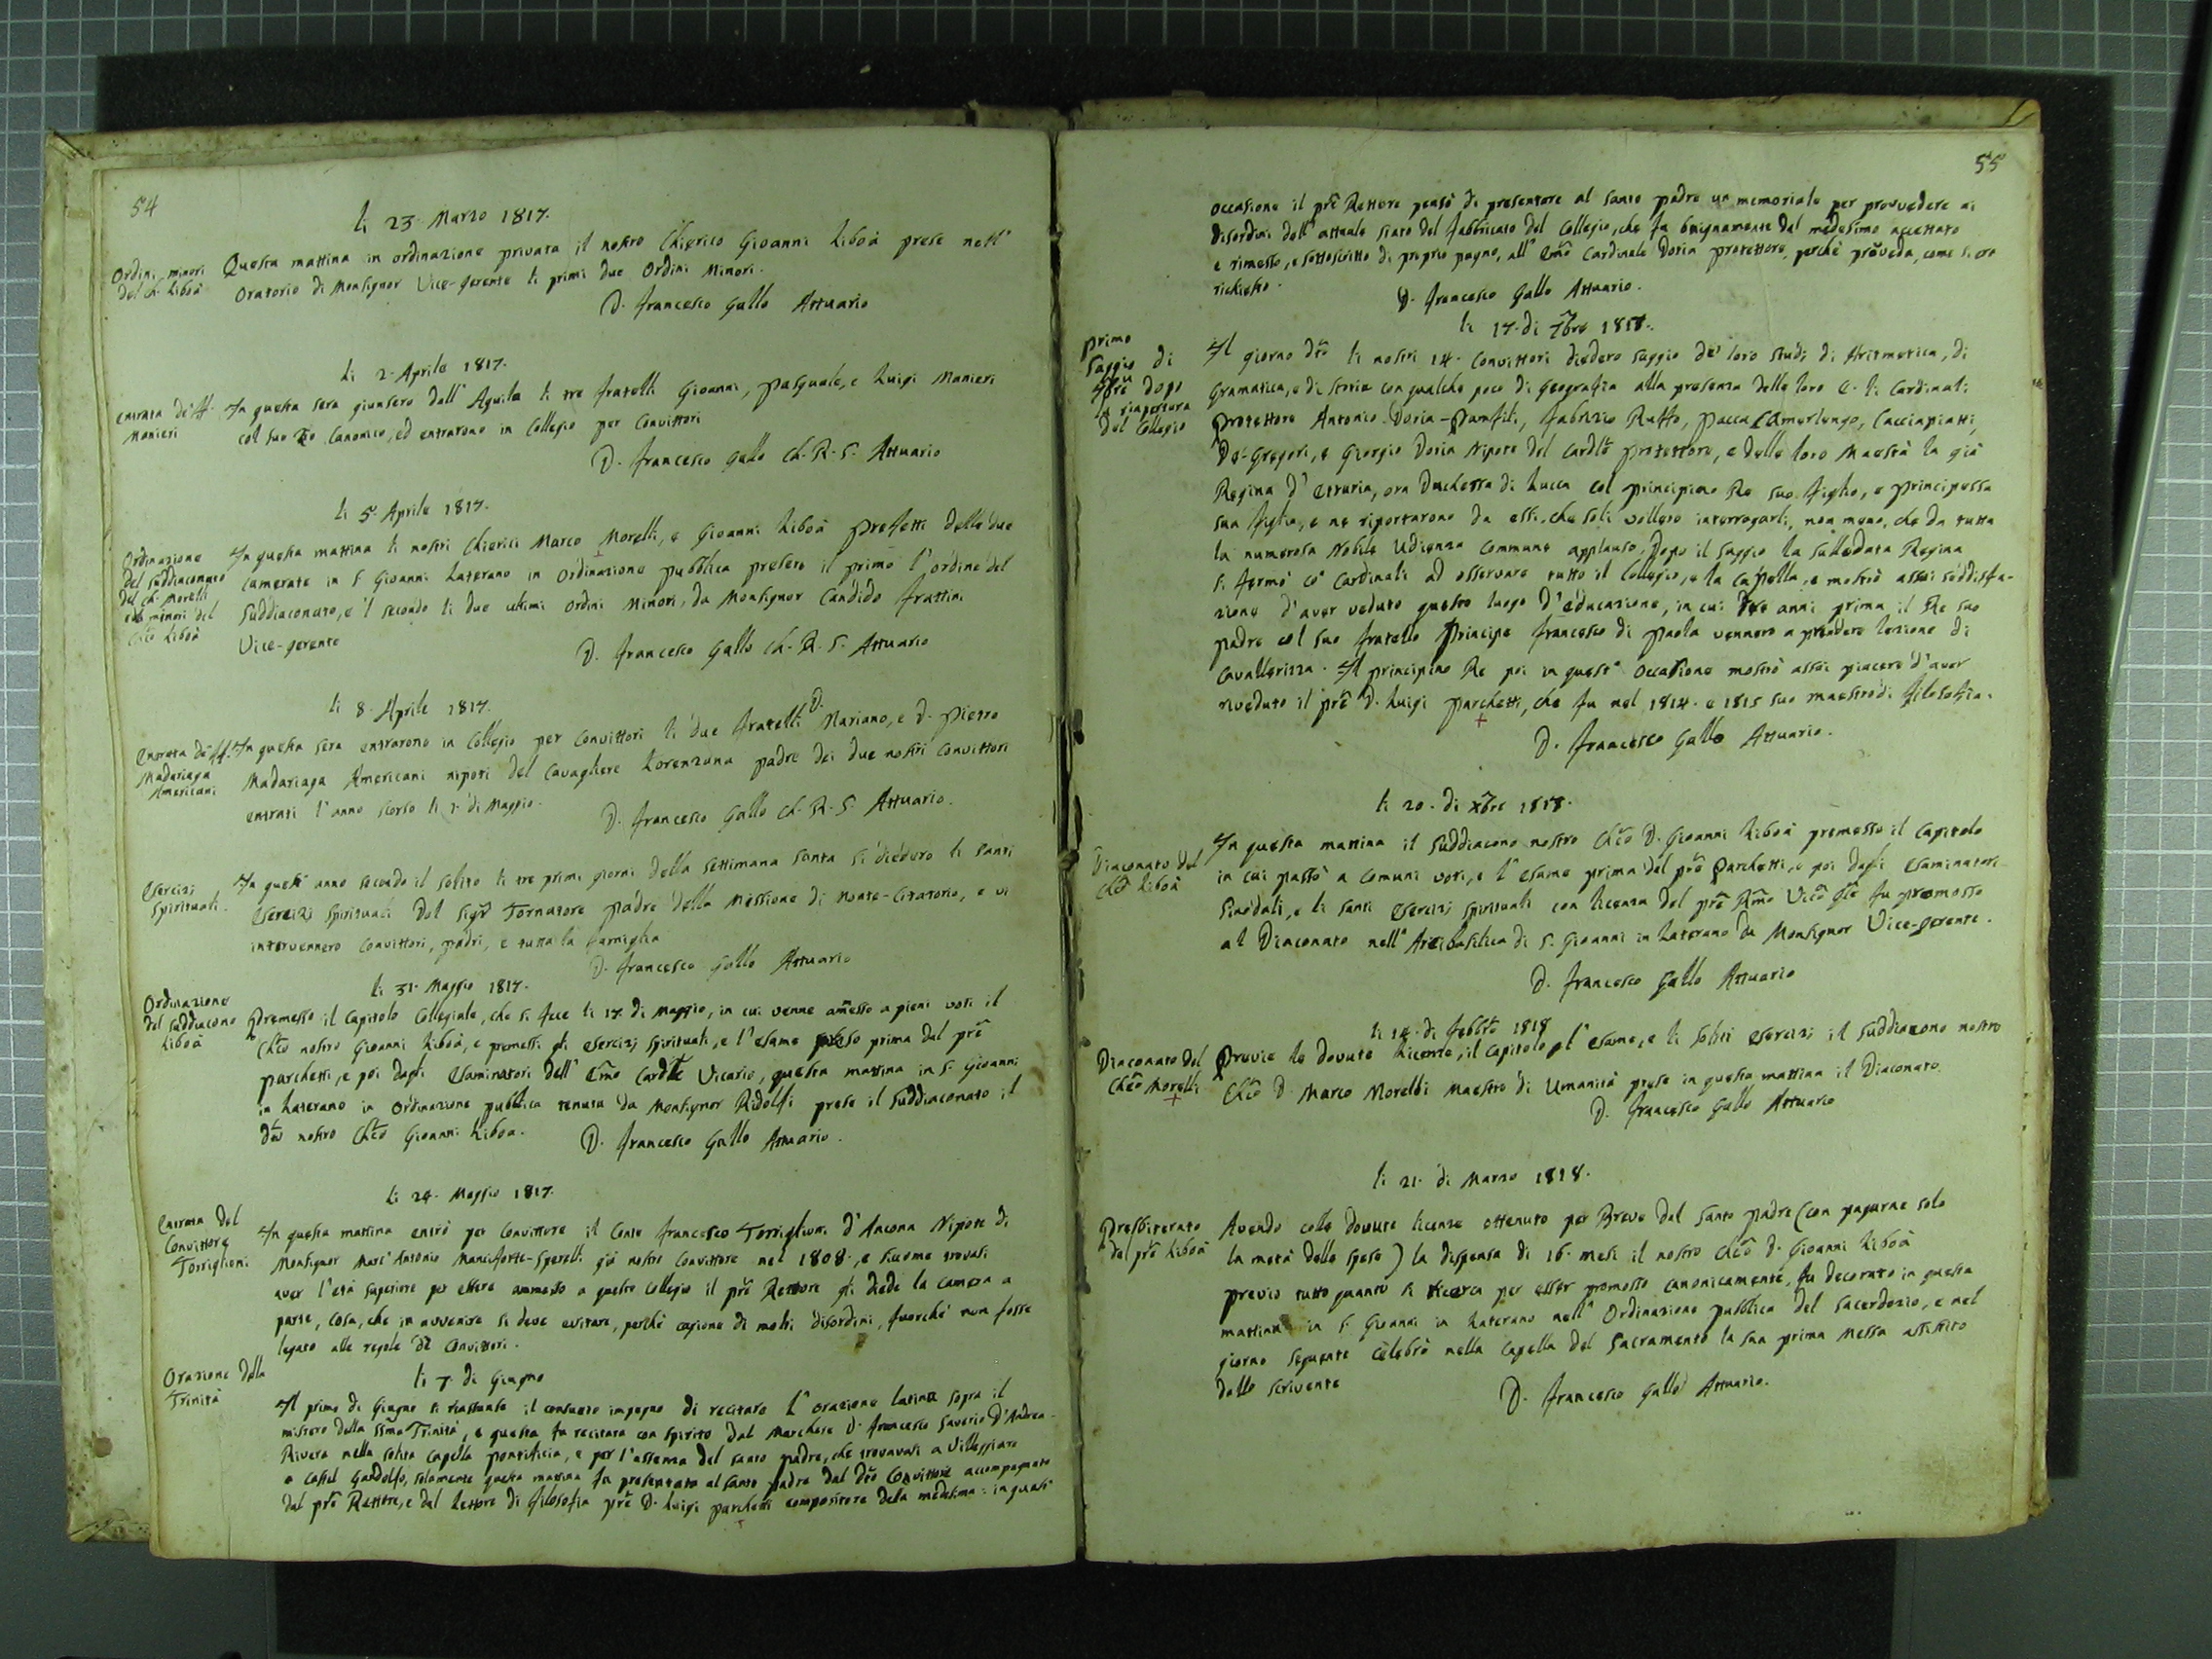 54
li 23. Marzo 1817.
Ordini minori
del Ch. Liboà
Questa mattina in ordinazione privata il nostro Chierico Gioanni Liboà prese nell'
Oratorio di Monsignor Vice-gerente li primi due Ordini Minori.
D. Francesco Gallo Attuario
li 2. Aprile 1817.
entrata de' ff.
Manieri
In questa sera giunsero dall'Aquila li tre fratelli Gioanni, Pasquale, e Luigi Manieri
col suo zio Canonico, ed entrarono in Collegio per Convittori
D. Francesco Gallo Ch. R. S. Attuario
li 5. Aprile 1817.
Ordinazione
del suddiaconato
del Ch. Morelli
e de' minori del
Chco Liboà
In questa mattina li nostri Chierici Marco Morelli, e Gioanni Liboà Prefetti delle due
Camerate in S. Gioanni Laterano in Ordinazione pubblica presero il primo l'ordine del
Suddiaconato, e 'l secondo li due ultimi Ordini Minori, da Monsignor Candido Frattini
Vice-gerente
D. Francesco Gallo Ch. R. S. Attuario
li 8. Aprile 1817.
Entrata de' ff.
Madariaga
Americani
In questa sera entrarono in Collegio per Convittori li due fratelli D. Mariano, e D. Pietro
Madariaga Americani nipoti del Cavagliere Lorenzana padre dei due nostri Convittori
entrati l'anno scorso li 2. di Maggio.
D. Francesco Gallo Ch. R. S. Attuario.
Esercizi
Spirituali.
In quest'anno secondo il solito li tre primi giorni della settimana santa si diedero li santi
Esercizj Spirituali dal Sigr Tornatore padre della Missione di Monte-Citatorio, e vi
intervennero Convittori, padri, e tutta la famiglia
D. Francesco Gallo Attuario
li 31. Maggio 1817.
Ordinazione
del suddiacono
Liboà
Premesso il Capitolo Collegiale, che si fece li 17. di Maggio, in cui venne amesso a pieni voti il
Chco nostro Gioanni Liboà, e premessi gli esercizj spirituali, e l'esame preso prima dal pre
Parchetti, e poi dagli Esaminatori dell'Emo Cardle Vicario, questa mattina in S. Gioanni
in Laterano in Ordinazione pubblica tenuta da Monsignor Ridolfi prese il Suddiaconato il
dto nostro Chco Gioanni Liboa.
D. Francesco Gallo Attuario.
li 24. Maggio 1817.
Entrata del
Convittore
Torriglioni
In questa mattina entrò per Convittore il Conte Francesco Torriglioni d'Ancona Nipote di
Monsignor Marc'Antonio Manciforte-Sperelli già nostro Convittore nel 1808., e siccome trovasi
aver l'età superiore per essere ammesso a questo Collegio il pre Rettore gli diede la camera a
parte, cosa, che in avvenire si deve evitare, perchè cagione di molti disordini, fuorchè non fosse
legato alle regole de' Convittori.
Orazione della
Trinità
li 7 di Giugno
Il primo di Giugno si riassunse il consueto impegno di recitare l'orazione latina sopra il
mistero della SSma Trinità, e questa fu recitata con spirito dal Marchese D. Francesco Saverio D'Andrea-
Rivera nella solita Capella Pontificia, e per l'assenza del santo padre, che trovavasi a Villeggiare
a Castel Gandolfo, solamente questa mattina fu presentato al Santo padre dal dto Convittore accompagnato
dal pre Rettore, e dal Lettore di filosofia pre D. Luigi Parchetti compositore della medesima: in quest'
55
occasione il pre Rettore pensò di presentare al santo padre un memoriale per provvedere ai
disordini dell'attuale stato del fabbricato del Collegio, che fu benignamente dal medesimo accettato
e rimesso, e sottoscritto di proprio pugno, all'Emo Cardinale Doria protettore, perchè provveda, come si era
richiesto.
D. Francesco Gallo Attuario.
li 17. di 7bre 1817.
Primo
Saggio di
7bre dopo
la riapertura
del Collegio
Il giorno dto li nostri 14. Convittori diedero saggio de' loro studj di Aritmetica, di
Gramatica, e di storia con qualche poco di Geografia alla presenza delle loro E. li Cardinali
Protettore Antonio Doria-Pamfili, Fabrizio Ruffo, Pacca Camerlengo, Cacciapiatti,
De-Gregori, e Giorgio Doria Nipote del Cardle protettore, e delle loro Maestà la già
Regina d'Etruria, ora Duchessa di Lucca col principino Re suo figlio, e principessa
sua figlia, e ne riportarono da essi, che soli vollero interrogarli, non meno, che da tutta
la numerosa Nobile Udienza commune applauso. Dopo il saggio la sullodata Regina
si fermò co' Cardinali ad osservare tutto il Collegio, e la Capella, e mostrò assai soddisfa-
zione d'aver veduto questo luogo d'educazione, in cui tre anni prima il Re suo
padre col suo fratello Principe Francesco di Paola vennero a prendere lezione di
Cavallerizza. Il principino Re poi in quest'occasione mostrò assai piacere d'aver
riveduto il pre D. Luigi Parchetti, che fu nel 1814. e 1815 suo maestro di filosofia.
D. Francesco Gallo Attuario.
li 20. di xbre 1817.
Diaconato del
Chco Liboà
In questa mattina il Suddiacono nostro Chco D. Gioanni Liboà premesso il Capitolo
in cui passò a comuni voti, e l'esame prima dal pre Parchetti, e poi dagli Esaminatori
Sinodali, e li santi Esercizj spirituali con licenza del pre Rmo Vico Gle fu promosso
al Diaconato nell'Arcibasilica di S. Gioanni in Laterano da Monsignor Vice-gerente.
D. Francesco Gallo Attuario
li 14. di Febbro 1818
Diaconato del
Chco Morelli
Previe le dovute licenze, il Capitolo, l'esame, e li soliti esercizj il Suddiacono nostro
Chco D. Marco Morelli Maestro di Umanità prese in questa mattina il Diaconato.
D. Francesco Gallo Attuario
li 21. di Marzo 1818.
Presbiterato
del pre Liboà
Avendo colle dovute licenze ottenuto per Breve dal Santo Padre (con pagarne solo
la metà delle spese) la dispensa di 16. mesi il nostro Chco D. Gioanni Liboà
previo tutto quanto si ricerca per esser promosso canonicamente, fu decorato in questa
mattina in S. Gioanni in Laterano nell'Ordinazione pubblica del Sacerdozio, e nel
giorno seguente celebrò nella Capella del Sacramento la sua prima Messa assistito
dallo scrivente
D. Francesco Gallo Attuario.